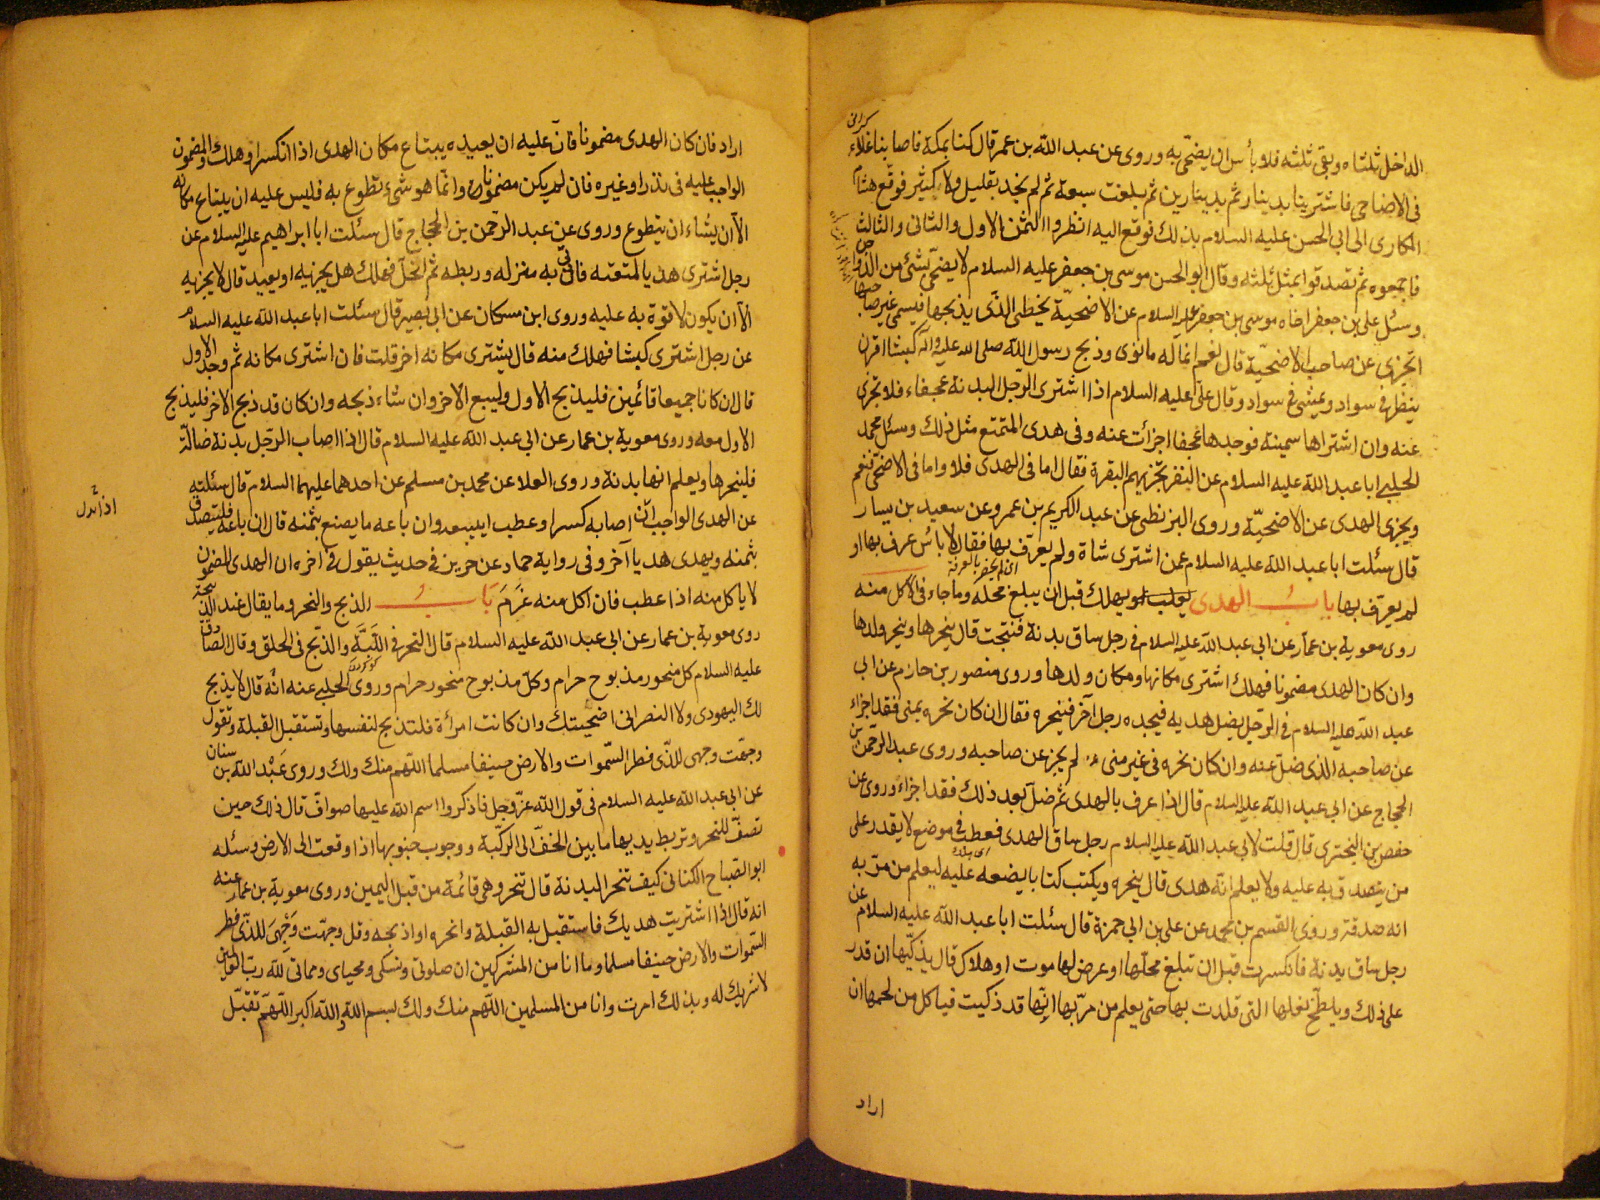 الداخل ثلثاه وبقى ثلثه فلا بأس ان يضحى به وروى عن عبد الله بن عمر قال كنا بمكة فاصابنا غلاء
فى الاضاحى فاشترينا بدينار ثم بدينارين ثم بلغت سبعة ثم لم يجد بقليل ولا كثير فوقع هشام
المكارى الى ابى الحسن عليه السلام بذلك فوقع اليه انظروا الثمن الاول والثانى والثالث
فاجمعوه ثم تصدقوا بمثل ثلثه وقال ابو الحسن موسى بن جعفر عليه السلام لا يضحى بشئ من الدواجن
وسئل على بن جعفر اخاه موسى بن جعفر عليه السلام عن الاضحية يخطى الذى يذبحها فيسمى غير صاحبها
اتجزى عن صاحب الاضحية قال نعم انما له ما نوى وذبح رسول الله صلى الله عليه واله كبشا اقرن
ينظر فى سواد ويمشى فى سواد وقال على عليه السلام اذا اشترى الرجل البدنة عجفاء فلا تجزى
عنه وان اشتراها سمينة فوجدها عجفا اجزأت عنه وفى هدى المتمتع مثل ذلك وسئل محمد
الحلبى ابا عبد الله عليه السلام عن النفر تجزيهم البقرة فقال اما فى الهدى فلا واما فى الاضحى فنعم
ويجزى الهدى عن الاضحية وروى البزنطى عن عبد الكريم بن عمرو عن سعيد بن يسار
قال سئلت ابا عبد الله عليه السلام عمن اشترى شاة ولم يعرف بها فقال لا باس عرف بها او
لم يعرف بها باب الهدى يعطب او يهلك قبل ان يبلغ محله وما جاء فى الاكل منه
روى معوية بن عمار عن ابى عبد الله عليه السلام فى رجل ساق بدنة فنتجت قال ينحرها وينحر ولدها
وان كان الهدى مضمونا فهلك اشترى مكانها ومكان ولدها وروى منصور بن حازم عن ابى
عبد الله عليه السلام فى الرجل يضل هديه فيجده رجل آخر فينحره فقال ان كان نحره بمنى فقد اجزاء
عن صاحبه الذى ضل عنه وان كان نحره فى غير منى لم يجز عن صاحبه وروى عبد الرحمن بن
الحجاج عن ابى عبد الله عليه السلام قال اذا عرف بالهدى ثم ضل بعد ذلك فقد اجزاء وروى عن
حفص بن البخترى قال قلت لابى عبد الله عليه السلام رجل ساق الهدى فعطب فى موضع لا يقدر على
من يتصدق به عليه ولا يعلم انه هدى قال ينحره ويكتب كتابا يضعه عليه ليعلم من مر به
انه صدقة وروى القسم بن محمد عن على بن ابى حمزة قال سئلت ابا عبد الله عليه السلام عن
رجل ساق بدنة فانكسرت قبل ان تبلغ محلها او عرض لها موت او هلاك قال يذكيها ان قدر
على ذلك ويلطخ نعلها التى قلدت بها حتى يعلم من مر بها انها قد ذكيت فياكل من لحمها ان
اراد
اراد فان كان الهدى مضمونا فان عليه ان يعيده يبتاع مكان الهدى اذا انكسر او هلك والمضمون
الواجب عليه فى نذر او غيره فان لم يكن مضمونا وانما هو شئ تطوع به فليس عليه ان يبتاع مكانه
الا ان يشاء ان يتطوع وروى عن عبد الرحمن بن الحجاج قال سئلت ابا ابراهيم عليه السلام عن
رجل اشترى هديا لمتعته فاتى به منزله وربطه ثم انحل فهلك هل يجزيه او يعيد قال لا يجزيه
الا ان يكون لا قوة به عليه وروى ابن مسكان عن ابى بصير قال سئلت ابا عبد الله عليه السلام
عن رجل اشترى كبشا فهلك منه قال يشترى مكانه اخر قلت فان اشترى مكانه ثم وجد الاول
قال ان كانا جميعا قائمين فليذبح الاول وليبع الاخر وان شاء ذبحه وان كان قد ذبح الاخر فليذبح
الاول معه وروى معوية بن عمار عن ابى عبد الله عليه السلام قال اذا اصاب الرجل بدنة ضالة
فلينحرها ويعلم انها بدنة وروى العلا عن محمد بن مسلم عن احدهما عليهما السلام قال سئلته
عن الهدى الواجب ان اصابه كسر او عطب ايبيعه وان باعه ما يصنع بثمنه قال ان باعه فليتصدق
بثمنه ويهدى هديا آخر وفى رواية حماد عن حريز فى حديث يقول فى آخره ان الهدى المضمون
لا ياكل منه اذا عطب فان اكل منه غرم باب الذبح والنحر وما يقال عند الذبيحة
روى معوية بن عمار عن ابى عبد الله عليه السلام قال النحر فى اللبة والذبح فى الحلق وقال الصادق
عليه السلام كل منحور مذبوح حرام وكل مذبوح منحور حرام وروى الحلبى عنه انه قال لا يذبح
لك اليهودى ولا النصرانى اضحيتك وان كانت امرأة فلتذبح لنفسها وتستقبل القبلة وتقول
وجهت وجهى للذى فطر السموات والارض حنيفا مسلما اللهم منك ولك وروى عبد الله بن سنان
عن ابى عبد الله عليه السلام فى قول الله عز وجل فاذكروا اسم الله عليها صواف قال ذلك حين
تصف للنحر وتربط يديها ما بين الخف الى الركبة ووجوب جنوبها اذا وقعت الى الارض وسئله
ابو الصباح الكنانى كيف تنحر البدنة قال تنحر وهى قائمة من قبل اليمين وروى معوية بن عمار عنه
انه قال اذا اشتريت هديك فاستقبل به القبلة وانحره او اذبحه وقل وجهت وجهى للذى فطر
السموات والارض حنيفا مسلما وما انا من المشركين ان صلوتى ونسكى ومحياى ومماتى لله رب العالمين
لا شريك له وبذلك امرت وانا من المسلمين اللهم منك ولك بسم الله والله اكبر اللهم تقبل